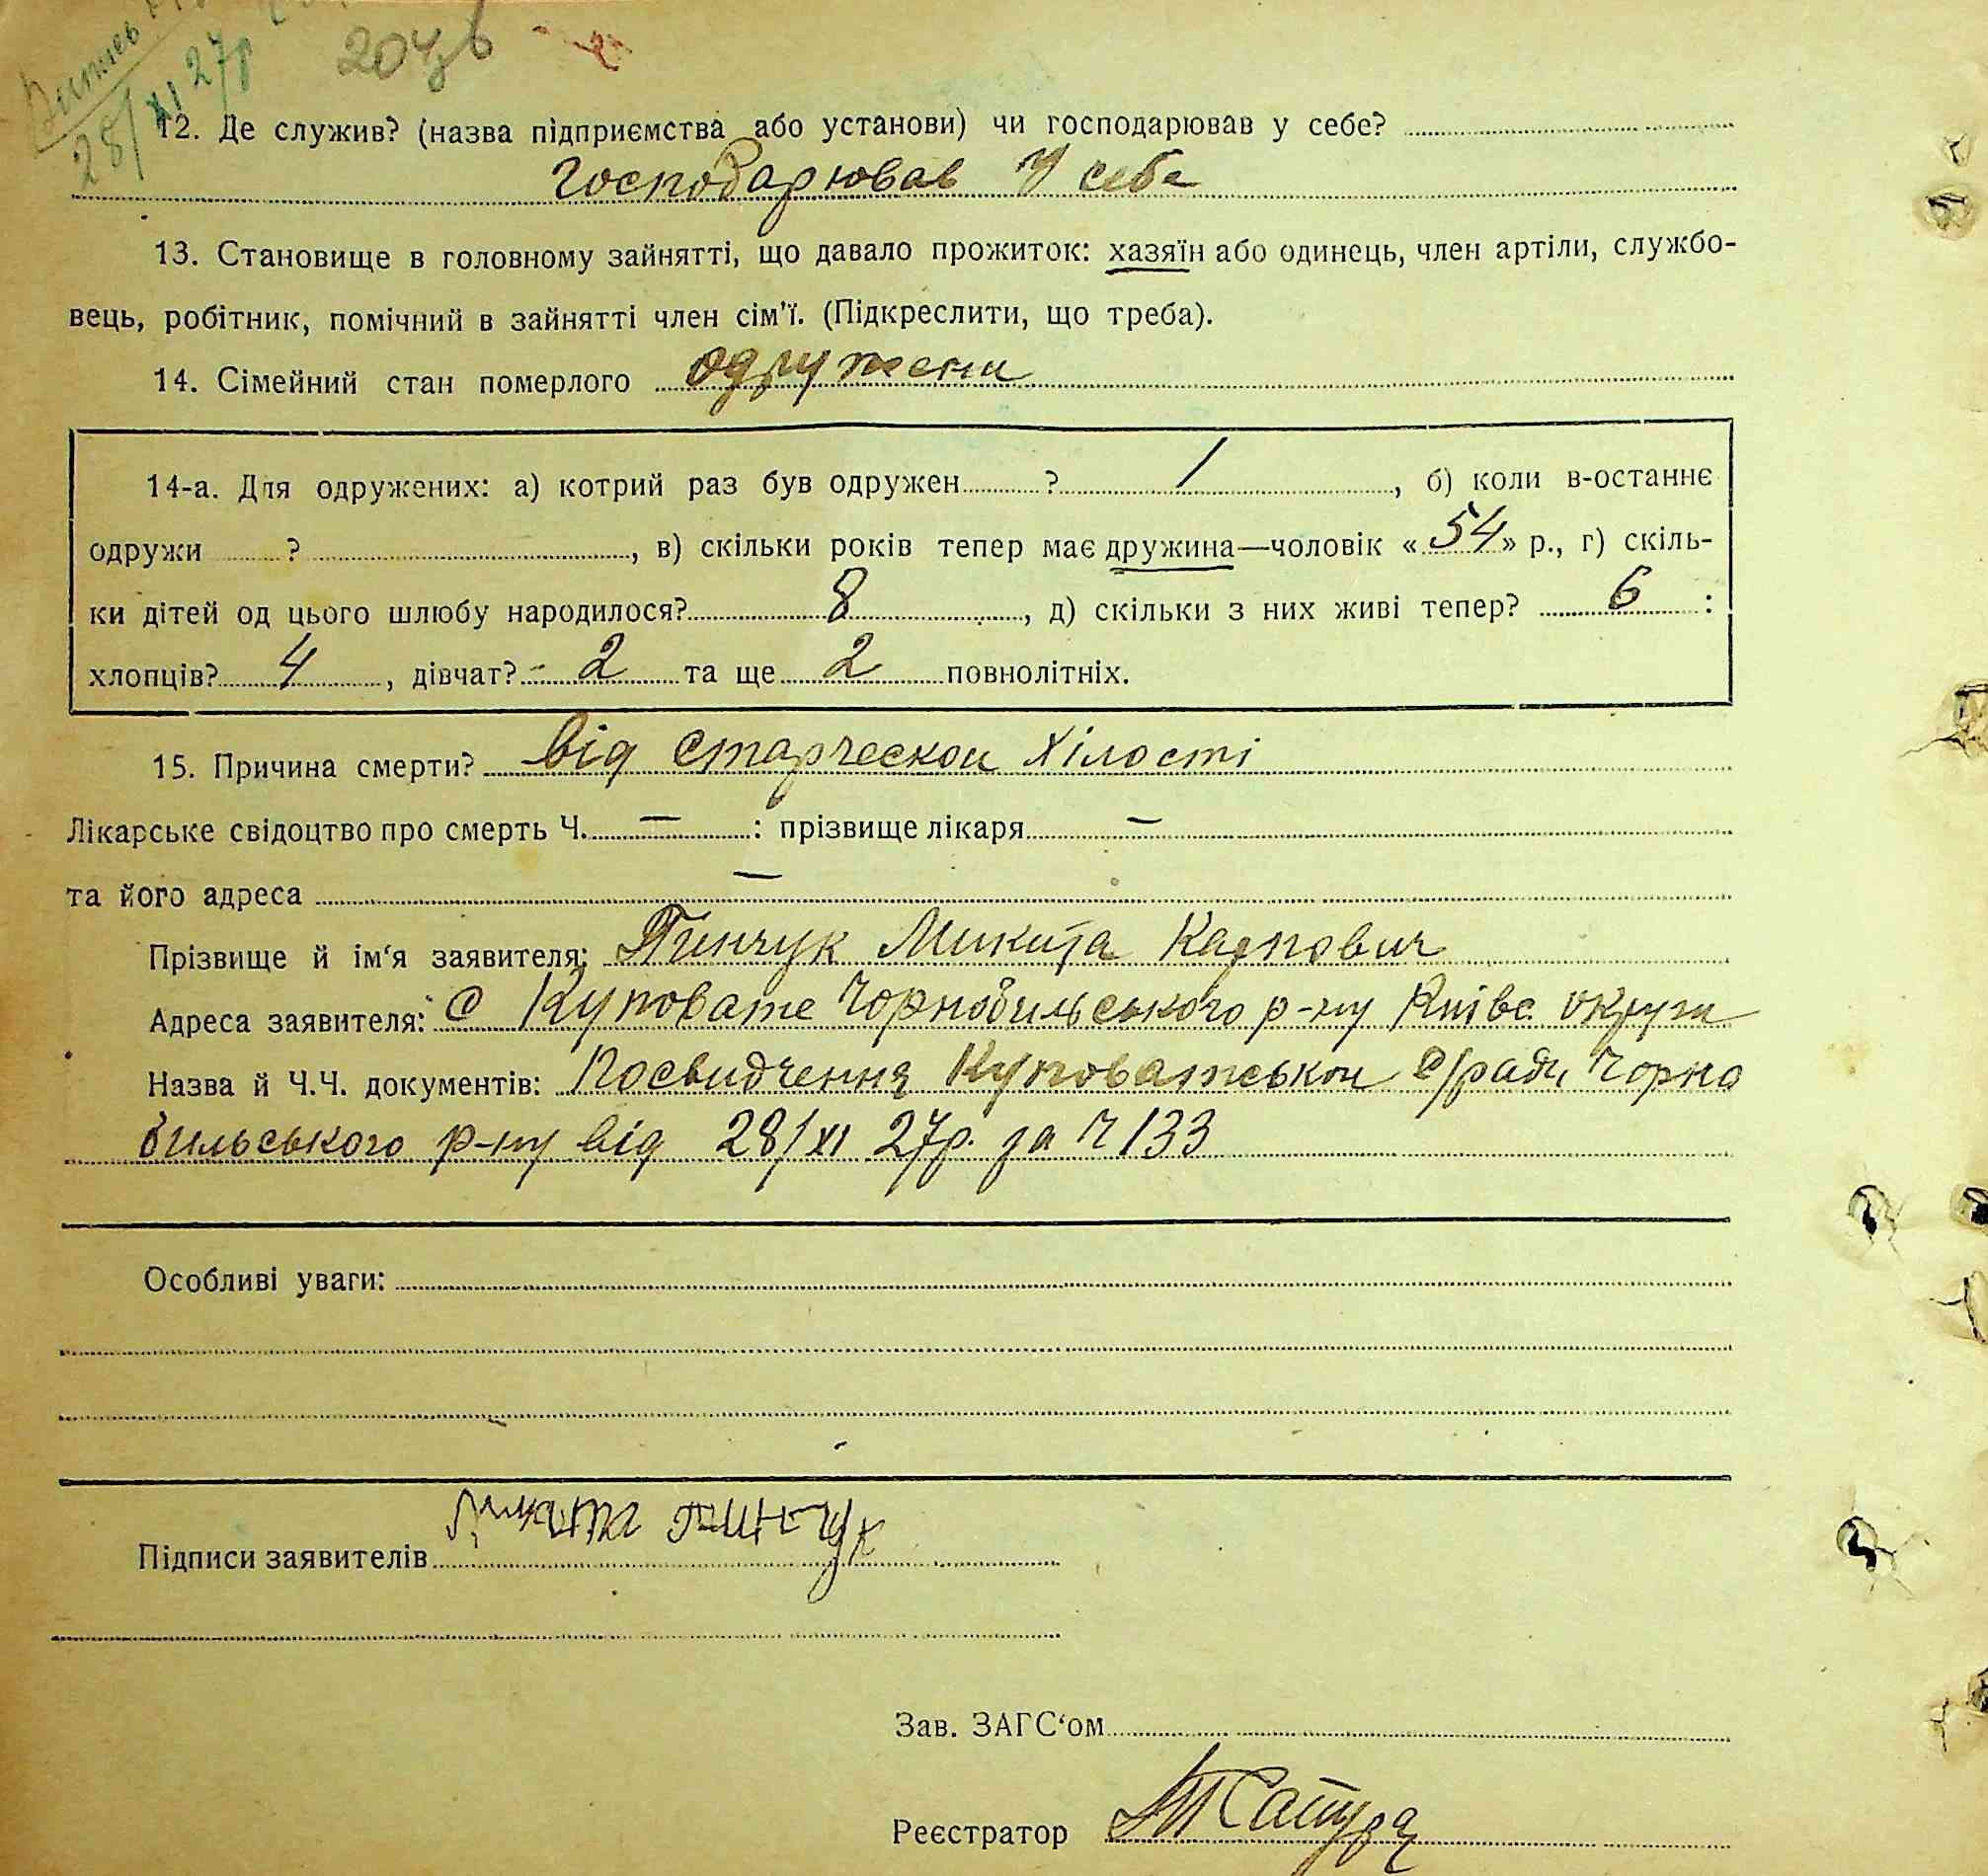 28/XI 27р
12. Де служив? (назва підприємства або установи) чи господарював у себе?
господарював у себе
13. Становище в головному зайнятті, що давало прожиток: хазяїн або одинець, член артіли, службо-
вець, робітник, помічний в зайнятті член сім'ї. (Підкреслити, що треба).
14. Сімейний стан померлого одружени
14-а. Для одружених: а) котрий раз був одружен ? 1, б) коли в-останнє
одружи ? , в) скільки років тепер має дружина—чоловік «54» р., г) скіль-
ки дітей од цього шлюбу народилося? 8, д) скільки з них живі тепер? 6 :
хлопців? 4, дівчат? - 2 та ще 2 повнолітніх.
15. Причина смерти? від старческои хілості
Лікарське свідоцтво про смерть Ч. — : прізвище лікаря —
та його адреса —
Прізвище й ім'я заявителя: Пинчук Микита Карпович
Адреса заявителя: с Куповате Чорнобильського р-ну Київс округи
Назва й Ч.Ч. документів: Посвидчення Куповатськои с/ради Чорно
бильського р-ну від 28/XI 27р. за Ч 133
Особливі уваги:
Підписи заявителів Микита пинчук
Зав. ЗАГС'ом
Реєстратор